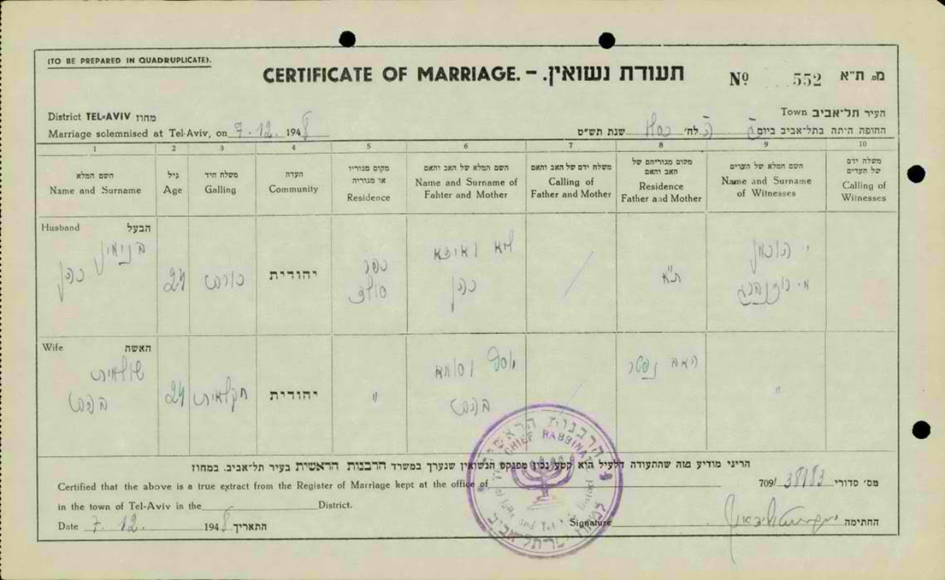 (TO BE PREPARED IN QUADRUPLICATE).
CERTIFICATE OF MARRIAGE. – תעודת נשואין.
Nº 552 מ. ת"א
District TEL-AVIV מחוז
העיר תל־אביב Town
Marriage solemnised at Tel-Aviv, on 7.12. 1948
החופה היתה בתל־אביב ביום ה' לח' שנת תש"ט
1 2 3 4 5 6 7 8 9 10
השם המלא
Name and Surname
גיל
Age
משלח היד
Galling
העדה
Community
מקום מגוריו
או מגוריה
Residence
השם המלא של האב והאם
Name and Surname of
Fahter and Mother
משלח ידם של האב והאם
Calling of
Father and Mother
מקום מגוריהם של
האב והאם
Residence
Father and Mother
השם המלא של העדים
Name and Surname
of Witnesses
משלח ידם
של העדים
Calling of
Witnesses
Husband הבעל
בנימין כהן
24
יהודית
כפר
כהן
ת"א
Wife האשה
שולמית
24
חקלאית
יהודית
"
האב נפטר
"
הרבנות הראשית
CHIEF RABBINATE
הריני מודיע בזה שהתעודה דלעיל הוא קטע נכון מפנקס הנשואין שנערך במשרד הרבנות הראשית בעיר תל־אביב. במחוז
Certified that the above is a true extract from the Register of Marriage kept at the office of
709/38183 מס' סדורי
in the town of Tel-Aviv in the District.
Date 7.12. 1948 התאריך
Signature החתימה